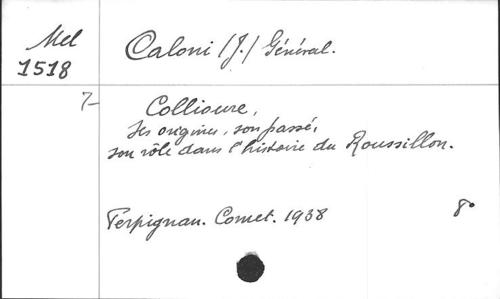 Mel
1518
Caloni (J.) Général.
7-
Collioure,
ses origines, son passé,
son rôle dans l'histoire du Roussillon.
Perpignan. Comet. 1938
8°